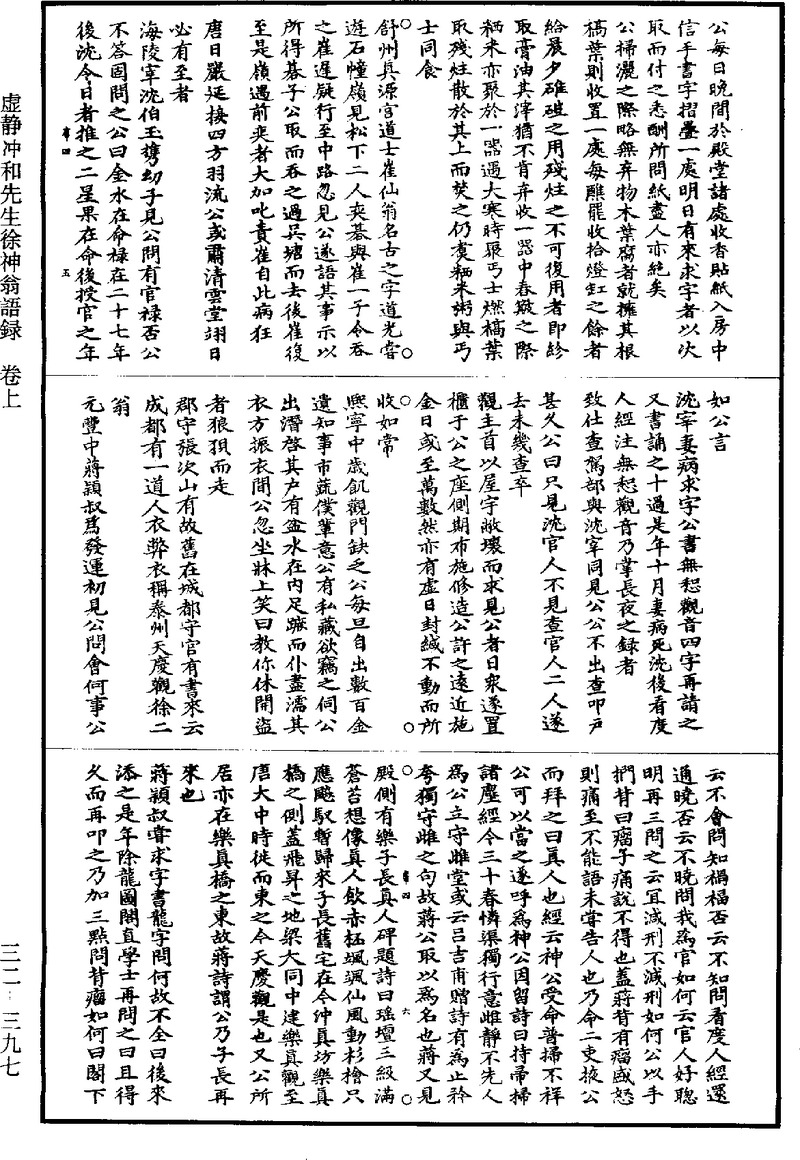 公每日晚間於殿堂諸處收香貼紙入房中
信手書字摺疊一處明日有來求字者以次
取而付之悉酬所問紙盡人亦絕矣
公掃灑之際略無弃物木葉腐者就擁其根
槁葉則收置一處每醮罷收拾燈缸之餘者
給晨夕碓磑之用殘炷之不可復用者即紾
取膏油其滓猶不肯弃收一器中舂簸之際
粞米亦聚於一器遇大寒時聚丐士燃槁葉
取殘炷散於其上而焚之仍煑粞米粥與丐
士同食
舒州真源宮道士崔仙翁名古之字道光嘗
遊石幢嶺見松下二人奕碁與崔一子令吞
之崔遲疑行至中路忽見公遂語其事示以
所得碁子公取而吞之過吳塘而去後崔復
至是嶺遇前奕者大加叱責崔自此病狂
唐日嚴延接四方羽流公或肅清雲堂翊日
必有至者
海陵宰沈伯玉攜幼子見公問有官祿否公
不答固問之公曰金水在命祿在二十七年
後沈令日者推之二星果在命後授官之年
五
如公言
沈宰妻病求字公書無恕觀音四字再請之
又書誦之十過是年十月妻病死沈後看度
人經注無恕觀音乃掌長夜之録者
致仕查駕部與沈宰同見公公不出查叩戶
甚久公曰只見沈官人不見查官人二人遂
去未幾查卒
觀主首以屋宇敝壞而求見公者日衆遂置
櫃于公之座側期布施修造公許之遠近施
金日或至萬數然亦有虛日封緘不動而所
收如常
熙寧中歲飢觀門缺乏公每旦自出數百金
遺知事市蔬僕輩意公有私藏欲竊之伺公
出潛啓其戶有盆水在內足蹶而仆盡濡其
衣方振衣間公忽坐牀上笑曰教你休開盜
者狼狽而走
郡守張次山有故舊在城都守官有書來云
成都有一道人衣弊衣稱泰州天慶觀徐二
翁
元豐中蔣潁叔爲發運初見公問會何事公
云不會問知禍福否云不知問看度人經還
通曉否云不曉問我爲官如何云官人好聰
明再三問之云宜減刑不減刑如何公以手
捫背曰瘤子痛說不得也蓋蔣背有瘤盛怒
則痛至不能語未嘗告人也乃命二吏掖公
而拜之曰真人也經云神公受命普掃不祥
公可以當之遂呼爲神公因留詩曰持帚掃
諸塵經今三十春憐渠獨行意雌靜不先人
爲公立守雌堂或云呂吉甫贈詩有爲止矜
夸獨守雌之句故蔣公取以爲名也蔣又見
殿側有樂子長真人碑題詩曰瑶壇三級滿
六
蒼苔想像真人飲赤杯颯颯仙風動杉檜只
應飈馭暫歸來子長舊宅在今沖真坊樂真
橋之側蓋飛昇之地梁大同中建樂真觀至
唐大中時徙而東之今天慶觀是也又公所
居亦在樂真橋之東故蔣詩謂公乃子長再
來也
蔣潁叔嘗求字書龍字問何故不全曰後來
添之是年除龍圖閣直學士再問之曰且得
久而再叩之乃加三點問背瘤如何曰閣下
虛静冲和先生徐神翁語録　卷上
三二–三九七